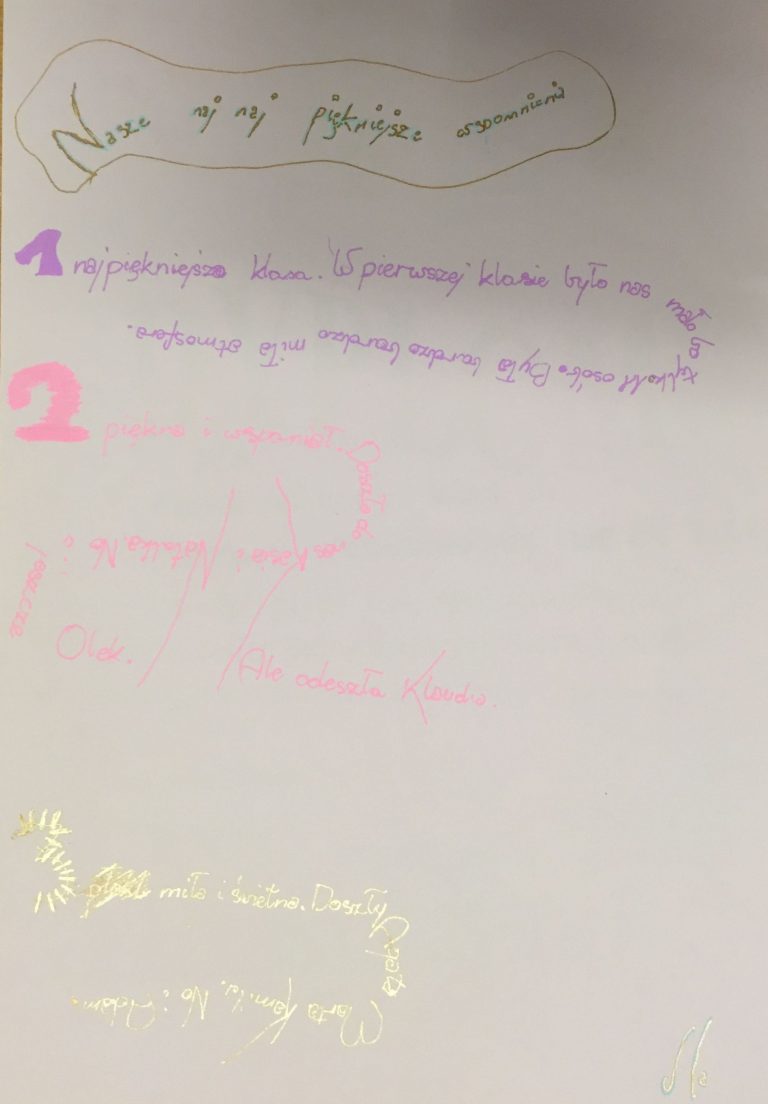 Nasze naj naj piękniejsze wspomnienia
1 najpiękniejsza klasa. W pierwszej klasie było nas mało bo
tylko 11 osób. Była bardzo bardzo miła atmosfera.
2 piękna i wspaniał. Doszła do
nas Kasia i Natalka. No i
jeszcze
Olek. Ale odeszła Klaudia.
3 miła i świetna. Doszły
Marta Kamila. No i Adam.